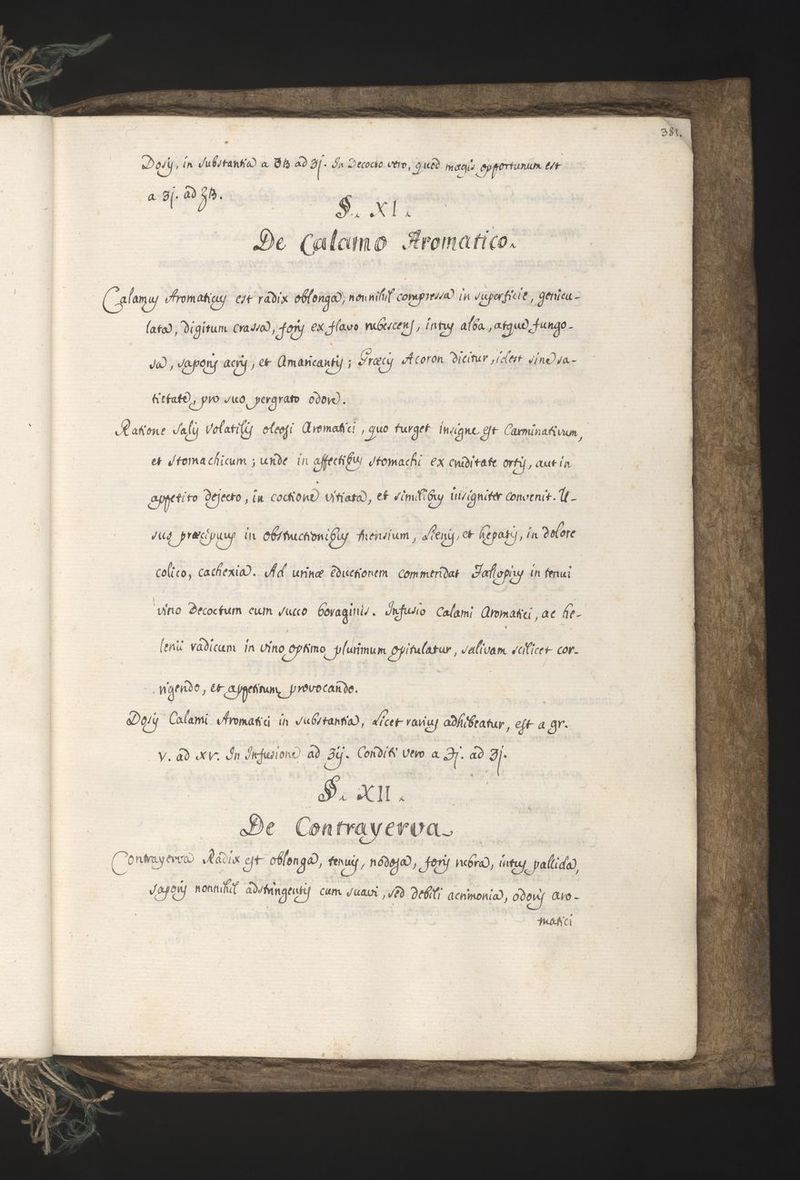 381.
Dosis, in Substantia a ʒß ad ʒj. In Decocto vero, quod magis opportunum est
a ʒj. ad ℥ß.
§. XI.
De Calamo Aromatico.
Calamus Aromaticus est radix oblonga, nonnihil compressa in superficie, genicu-
lata, digitum crassa, foris ex flavo rubescens, intus alba, atque fungo-
sa, saporis acris, et amaricantis; Græcis Acoron dicitur, idest sine sa-
tietate, pro suo pergrato odore.
Ratione Salis Volatilis oleosi Aromatici, quo turget insigne est Carminativum,
et Stomachicum; unde in affectibus stomachi ex cruditate ortis, aut in
appetito dejecto, in coctione vitiata, et similibus insigniter convenit. U-
sus præcipuus in obstructionibus mensium, Lienis, et hepatis, in dolore
colico, cachexia. Ad urinæ eductionem commendat Fallopius in tenui
vino Decoctum cum succo boraginis. Infusio Calami Aromatici, ac he-
lenii radicum in vino optimo plurimum opitulatur, salivam scilicet cor-
rigendo, et appetitum provocando.
Dosis Calami Aromatici in substantia, licet varius adhibeatur, est a gr.
V. ad XV. In Infusione ad ʒij. Conditi vero a ℈j. ad ʒj.
§. XII.
De Contrayerva
Contrayerva Radix est oblonga, tenuis, nodosa, foris rubra, intus pallida,
saporis nonnihil adstringentis cum suavi, sed debili acrimonia, odoris aro-
matici